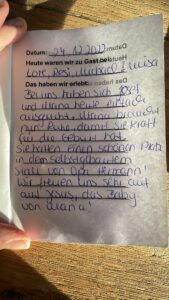 Datum: 24.12.2023
Heute waren wir zu Gast bei
Lore, Resi, Michael & Luisa
Das haben wir erlebt:
Bei uns haben sich Josef
und Maria heute einfach
ausgeruht. Maria braucht
nun Ruhe, damit sie Kraft
für die Geburt hat.
Sie hatten einen schönen Platz
in dem selbstgebauten
Stall von Opa Hermann!
Wir freuen uns sehr auf
auf Jesus, das Baby
von Maria!